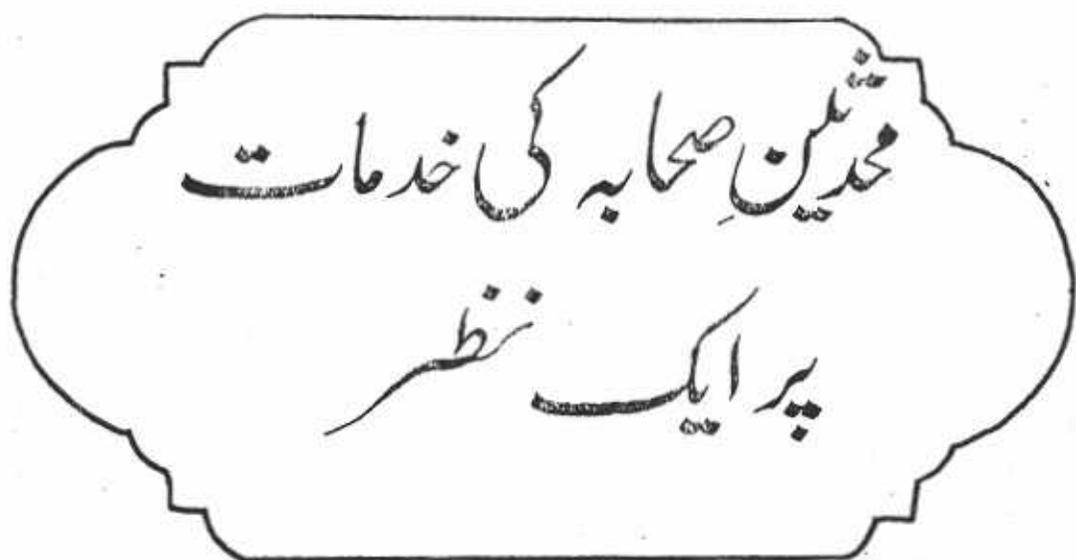 محدثینِ صحابہ کی خدمات
پر ایک نظر